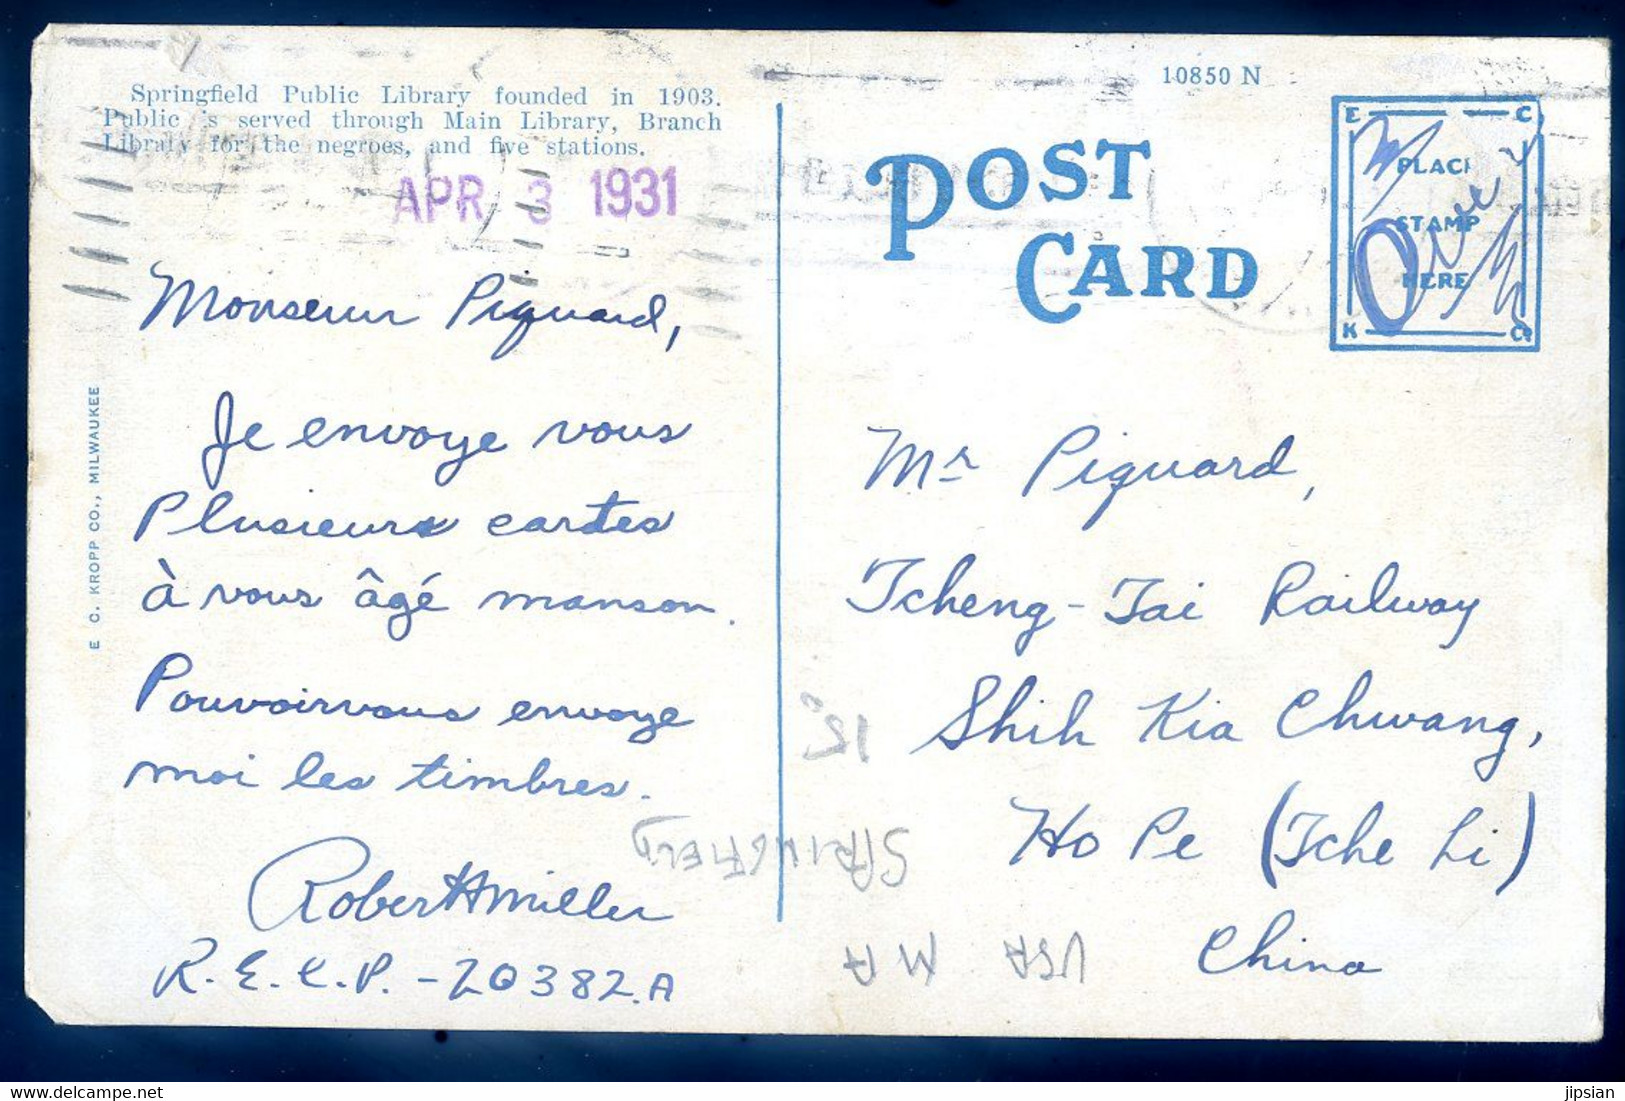 10850 N
Springfield Public Library founded in 1903.
Public is served through Main Library, Branch
Library for the negroes, and five stations.
APR 3 1931
POST
CARD
E C
PLACE
STAMP
HERE
K Co
Over
E. C. KROPP CO., MILWAUKEE
Monseiur Piquard,
Je envoye vous
Plusieurs cartes
à vous âgé manson.
Pouvoirvous envoye
moi les timbres.
Robert H Miller
R.E.C.P. - 20382.A
Mr Piquard,
Tcheng-Tai Railway
Shih Kia Chwang,
Ho Pe (Tche Li)
China
USA MA
SPRINGFIELD
jipsian